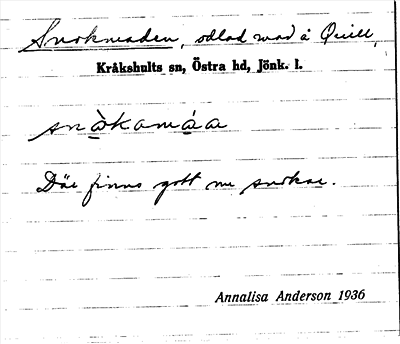 Snokmaden, odlad mad å Quill,
Kråkshults sn, Östra hd, Jönk. l.
snòkamáa
Där finns gott me snokar.
Annalisa Anderson 1936